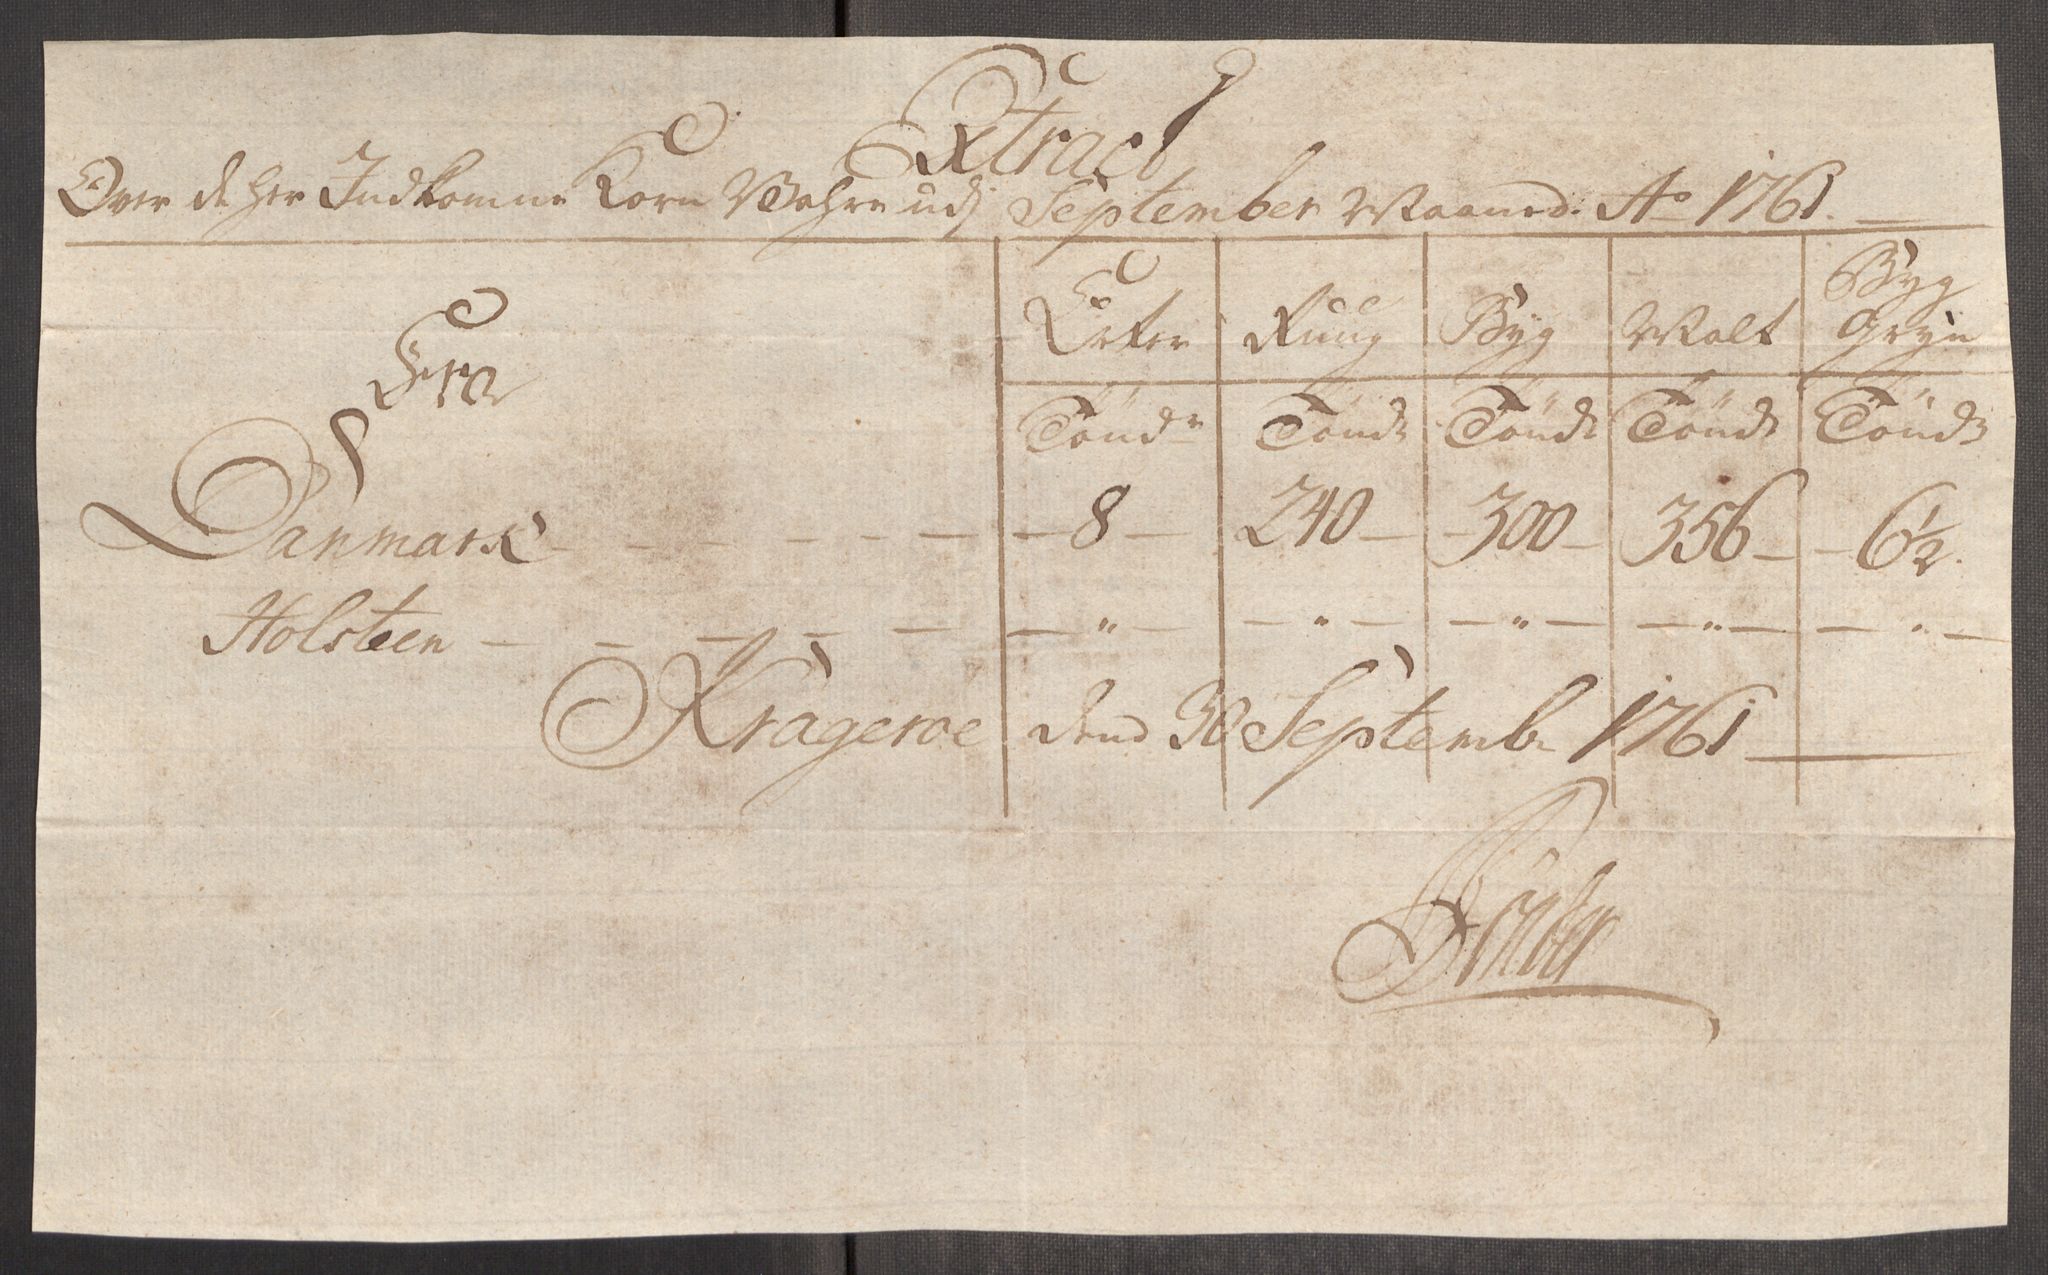 Extract
Over de her Indkomne Korn Wahre udj September Maaned: Ao 1761.
Erter Ruug Byg Malt Byg Gryn
Fra
Tönder Tönde Tönde Tönde Tönde
Danmark - - - - - - 8 - 240 - 300 - 356 - 6½.
Holsteen - - - - - - " - - " - - " - - " - - " -
Krageroe dend 30 Septembr 1761